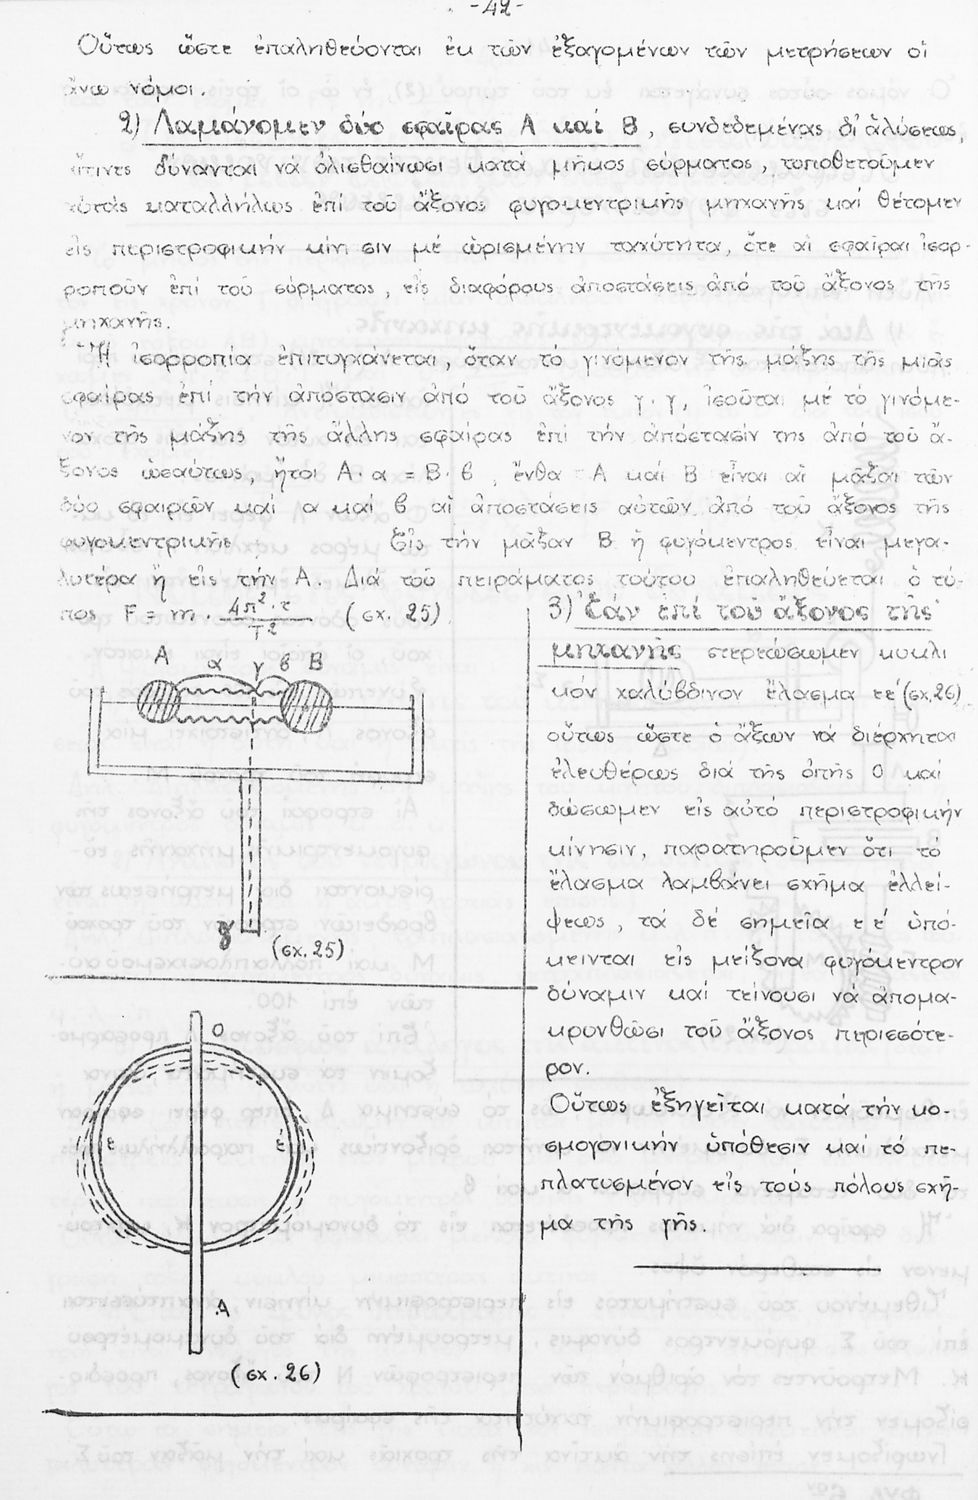 -42-
Οὕτως ὥστε ἐπαληθεύονται ἐκ τῶν ἐξαγομένων τῶν μετρήσεων οἱ
ἄνω νόμοι.
2) Λαμβάνομεν δύο σφαῖρας Α καί Β, συνδεδεμένας δι' ἁλύσεως,
αἵτινες δύνανται νά ὀλισθαίνωσι κατά μῆκος σύρματος, τοποθετοῦμεν
αὐτάς καταλλήλως ἐπί τοῦ ἄξονος φυγοκεντρικῆς μηχανῆς καί θέτομεν
εἰς περιστροφικήν κίνησιν μέ ὡρισμένην ταχύτητα, ὅτε αἱ σφαῖραι ἰσορ-
ροποῦν ἐπί τοῦ σύρματος, εἰς διαφόρους ἀποστάσεις ἀπό τοῦ ἄξονος τῆς
μηχανῆς.
Ἡ ἰσορροπία ἐπιτυγχάνεται, ὅταν τό γινόμενον τῆς μάζης τῆς μιᾶς
σφαίρας ἐπί τήν ἀπόστασιν ἀπό τοῦ ἄξονος γ.γ, ἰσοῦται μέ τό γινόμε-
νον τῆς μάζης τῆς ἄλλης σφαίρας ἐπί τήν ἀπόστασίν της ἀπό τοῦ ἄ-
ξονος ὡσαύτως, ἤτοι Α·α = Β·β, ἔνθα Α καί Β εἶναι αἱ μᾶζαι τῶν
δύο σφαιρῶν καί α καί β αἱ ἀποστάσεις αὐτῶν ἀπό τοῦ ἄξονος τῆς
φυγοκεντρικῆς Εἰς τήν μᾶζαν Β ἡ φυγόκεντρος εἶναι μεγα-
λυτέρα ἤ εἰς τήν Α. Διά τοῦ πειράματος τούτου ἐπαληθεύεται ὁ τύ-
πος F = m · 4π²·τ / T² (σχ. 25)
Α α γ β Β
γ
(σχ. 25)
3) Ἐάν ἐπί τοῦ ἄξονος τῆς
μηχανῆς στερεώσωμεν κυκλι
κόν χαλύβδινον ἔλασμα εέ (σχ.26)
οὕτως ὥστε ὁ ἄξων νά διέρχηται
ἐλευθέρως διά τῆς ὀπῆς Ο καί
δώσωμεν εἰς αὐτό περιστροφικήν
κίνησιν, παρατηροῦμεν ὅτι τό
ἔλασμα λαμβάνει σχῆμα ἐλλεί-
ψεως, τά δέ σημεῖα εέ ὑπό-
κεινται εἰς μείζονα φυγόκεντρον
δύναμιν καί τείνουσι νά ἀπομα-
κρυνθῶσι τοῦ ἄξονος περισσότε-
ρον.
Οὕτως ἐξηγεῖται κατά τήν κο-
σμογονικήν ὑπόθεσιν καί τό πε-
πλατυσμένον εἰς τούς πόλους σχῆ-
μα τῆς γῆς.
Ο
ε έ
Α
(σχ. 26)